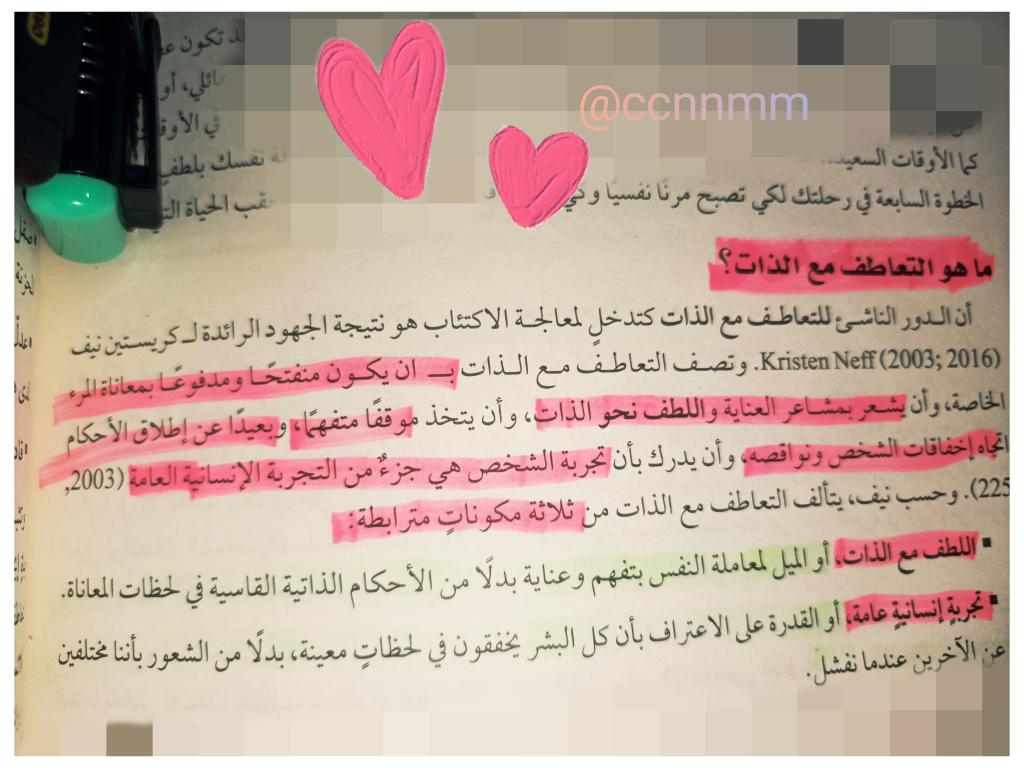 تكون
@ccnnmm
في الأوقات
كما الأوقات السعيدة نفسك بلطف
الخطوة السابعة في رحلتك لكي تصبح مرنًا نفسيًا و عقب الحياة
ما هو التعاطف مع الذات؟
أن الدور الناشئ للتعاطف مع الذات كتدخلٍ لمعالجة الاكتئاب هو نتيجة الجهود الرائدة لـ كريستين نيف
Kristen Neff (2003; 2016). وتصف التعاطف مع الذات بـ ان يكون منفتحًا ومدفوعًا بمعاناة المرء
الخاصة، وأن يشعر بمشاعر العناية واللطف نحو الذات، وأن يتخذ موقفًا متفهمًا، وبعيدًا عن إطلاق الأحكام
اتجاه إخفاقات الشخص ونواقصه، وأن يدرك بأن تجربة الشخص هي جزءٌ من التجربة الإنسانية العامة (2003,
225). وحسب نيف، يتألف التعاطف مع الذات من ثلاثة مكوناتٍ مترابطة:
▪ اللطف مع الذات، أو الميل لمعاملة النفس بتفهم وعناية بدلًا من الأحكام الذاتية القاسية في لحظات المعاناة.
▪ تجربةٍ إنسانيةٍ عامة، أو القدرة على الاعتراف بأن كل البشر يخفقون في لحظاتٍ معينة، بدلًا من الشعور بأننا مختلفين
عن الآخرين عندما نفشل.